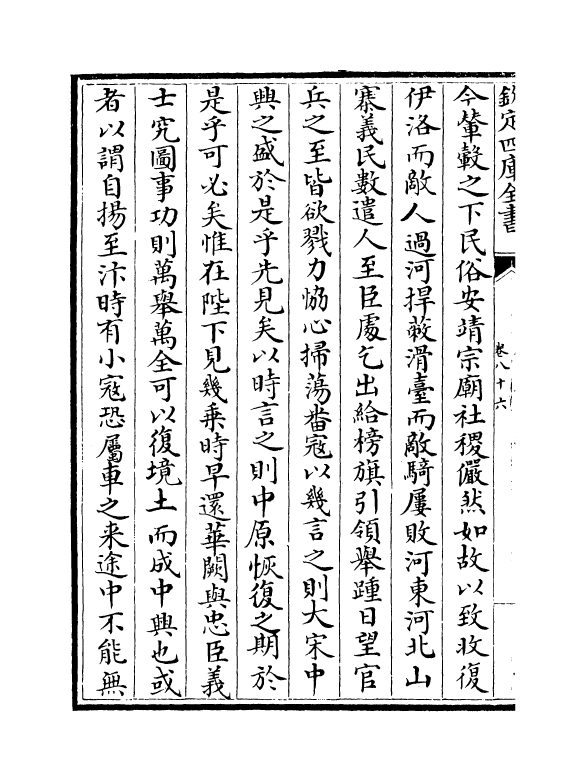 欽定四庫全書
卷八十六
今輦轂之下民俗安靖宗廟社稷儼然如故以致收復
伊洛而敵人過河捍蔽滑臺而敵騎屢敗河東河北山
寨義民數遣人至臣處乞出給榜旗引領舉踵日望官
兵之至皆欲戮力恊心掃蕩畨寇以幾言之則大宋中
興之盛於是乎先見矣以時言之則中原恢復之期於
是乎可必矣惟在陛下見幾乘時早還華闕與忠臣義
士究圖事功則萬舉萬全可以復境土而成中興也或
者以謂自揚至汴時有小寇恐屬車之来途中不能無